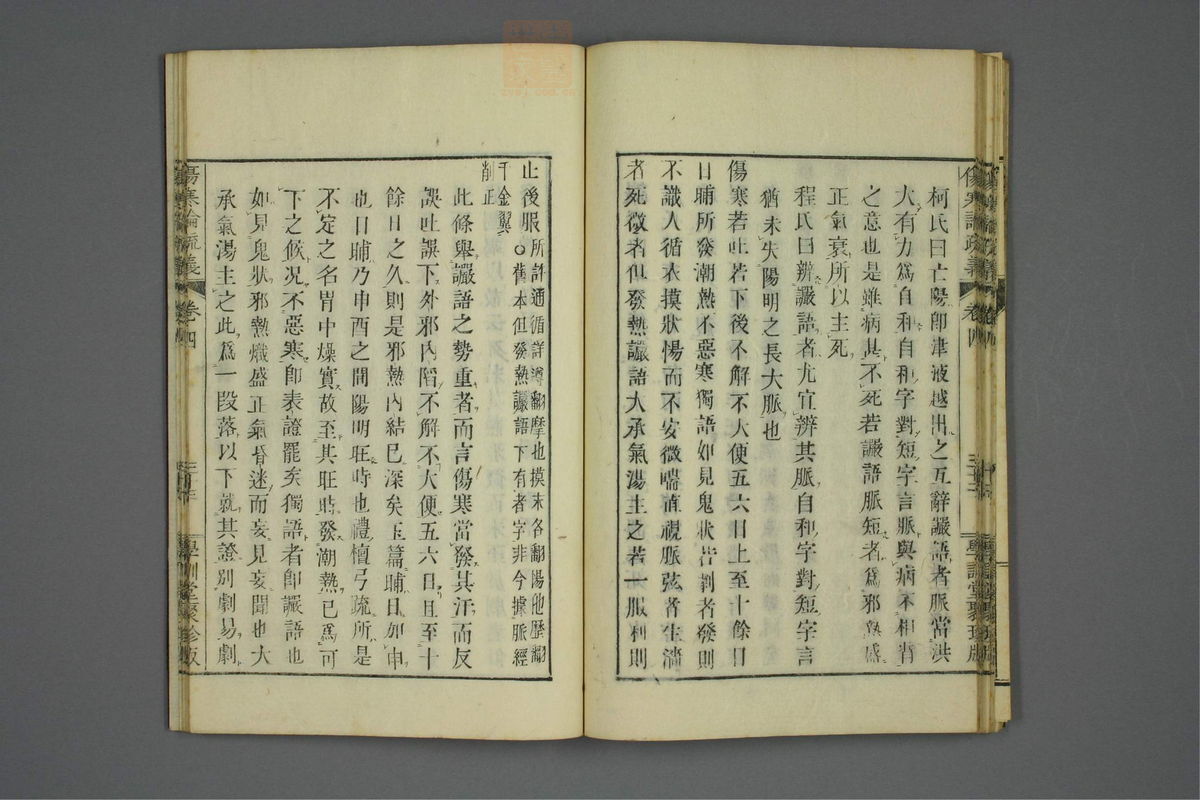 柯氏曰亡陽卽津液越出之互辭讝語者脈當洪
大有力爲自和自和字對短字言脈與病不相背
之意也是雖病甚不死若讝語脈短者爲邪熱盛
正氣衰所以主死
程氏曰辨讝語者尤宜辨其脈自和字對短字言
猶未失陽明之長大脈也
傷寒若吐若下後不解不大便五六日上至十餘日
日晡所發潮熱不惡寒獨語如見鬼狀若劇者發則
不識人循衣摸狀惕而不安微喘直視脈弦者生濇
者死微者但發熱讝語大承氣湯主之若一服利則
止後服所許通循詳遵翻摩也摸末各翻陽他歷翻
千金翼○舊本但發熱讝語下有者字非今據脈經
削正
此條舉讝語之勢重者而言傷寒當發其汗而反
誤吐誤下外邪內陷不解不大便五六日且至十
餘日之久則是邪熱內結已深矣玉篇晡日加申
也日晡乃申酉之間陽明旺時也禮檀弓疏所是
不定之名胃中燥實故至其旺時發潮熱已爲可
下之候況不惡寒卽表證罷矣獨語者卽讝語也
如見鬼狀邪熱熾盛正氣昏迷而妄見妄聞也大
承氣湯主之此爲一段落以下就其證別劇易劇
傷寒論疏義 卷四